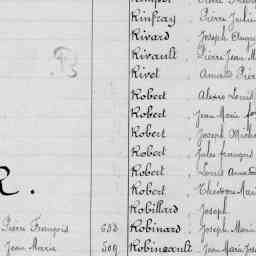 Rinfray Pierre Julien
Rivard Joseph
Rivault Pierre Jean M
Rivet Pierre
Robert Alexis Louis
Robert Jean Marie
Robert Joseph
Robert Jules François
Robert Louis
R. Robert Théodore Mari
Robillard Joseph
Pierre François 638 Robinard Joseph Marie
Jean Marie 509 Robineault Jean Marie